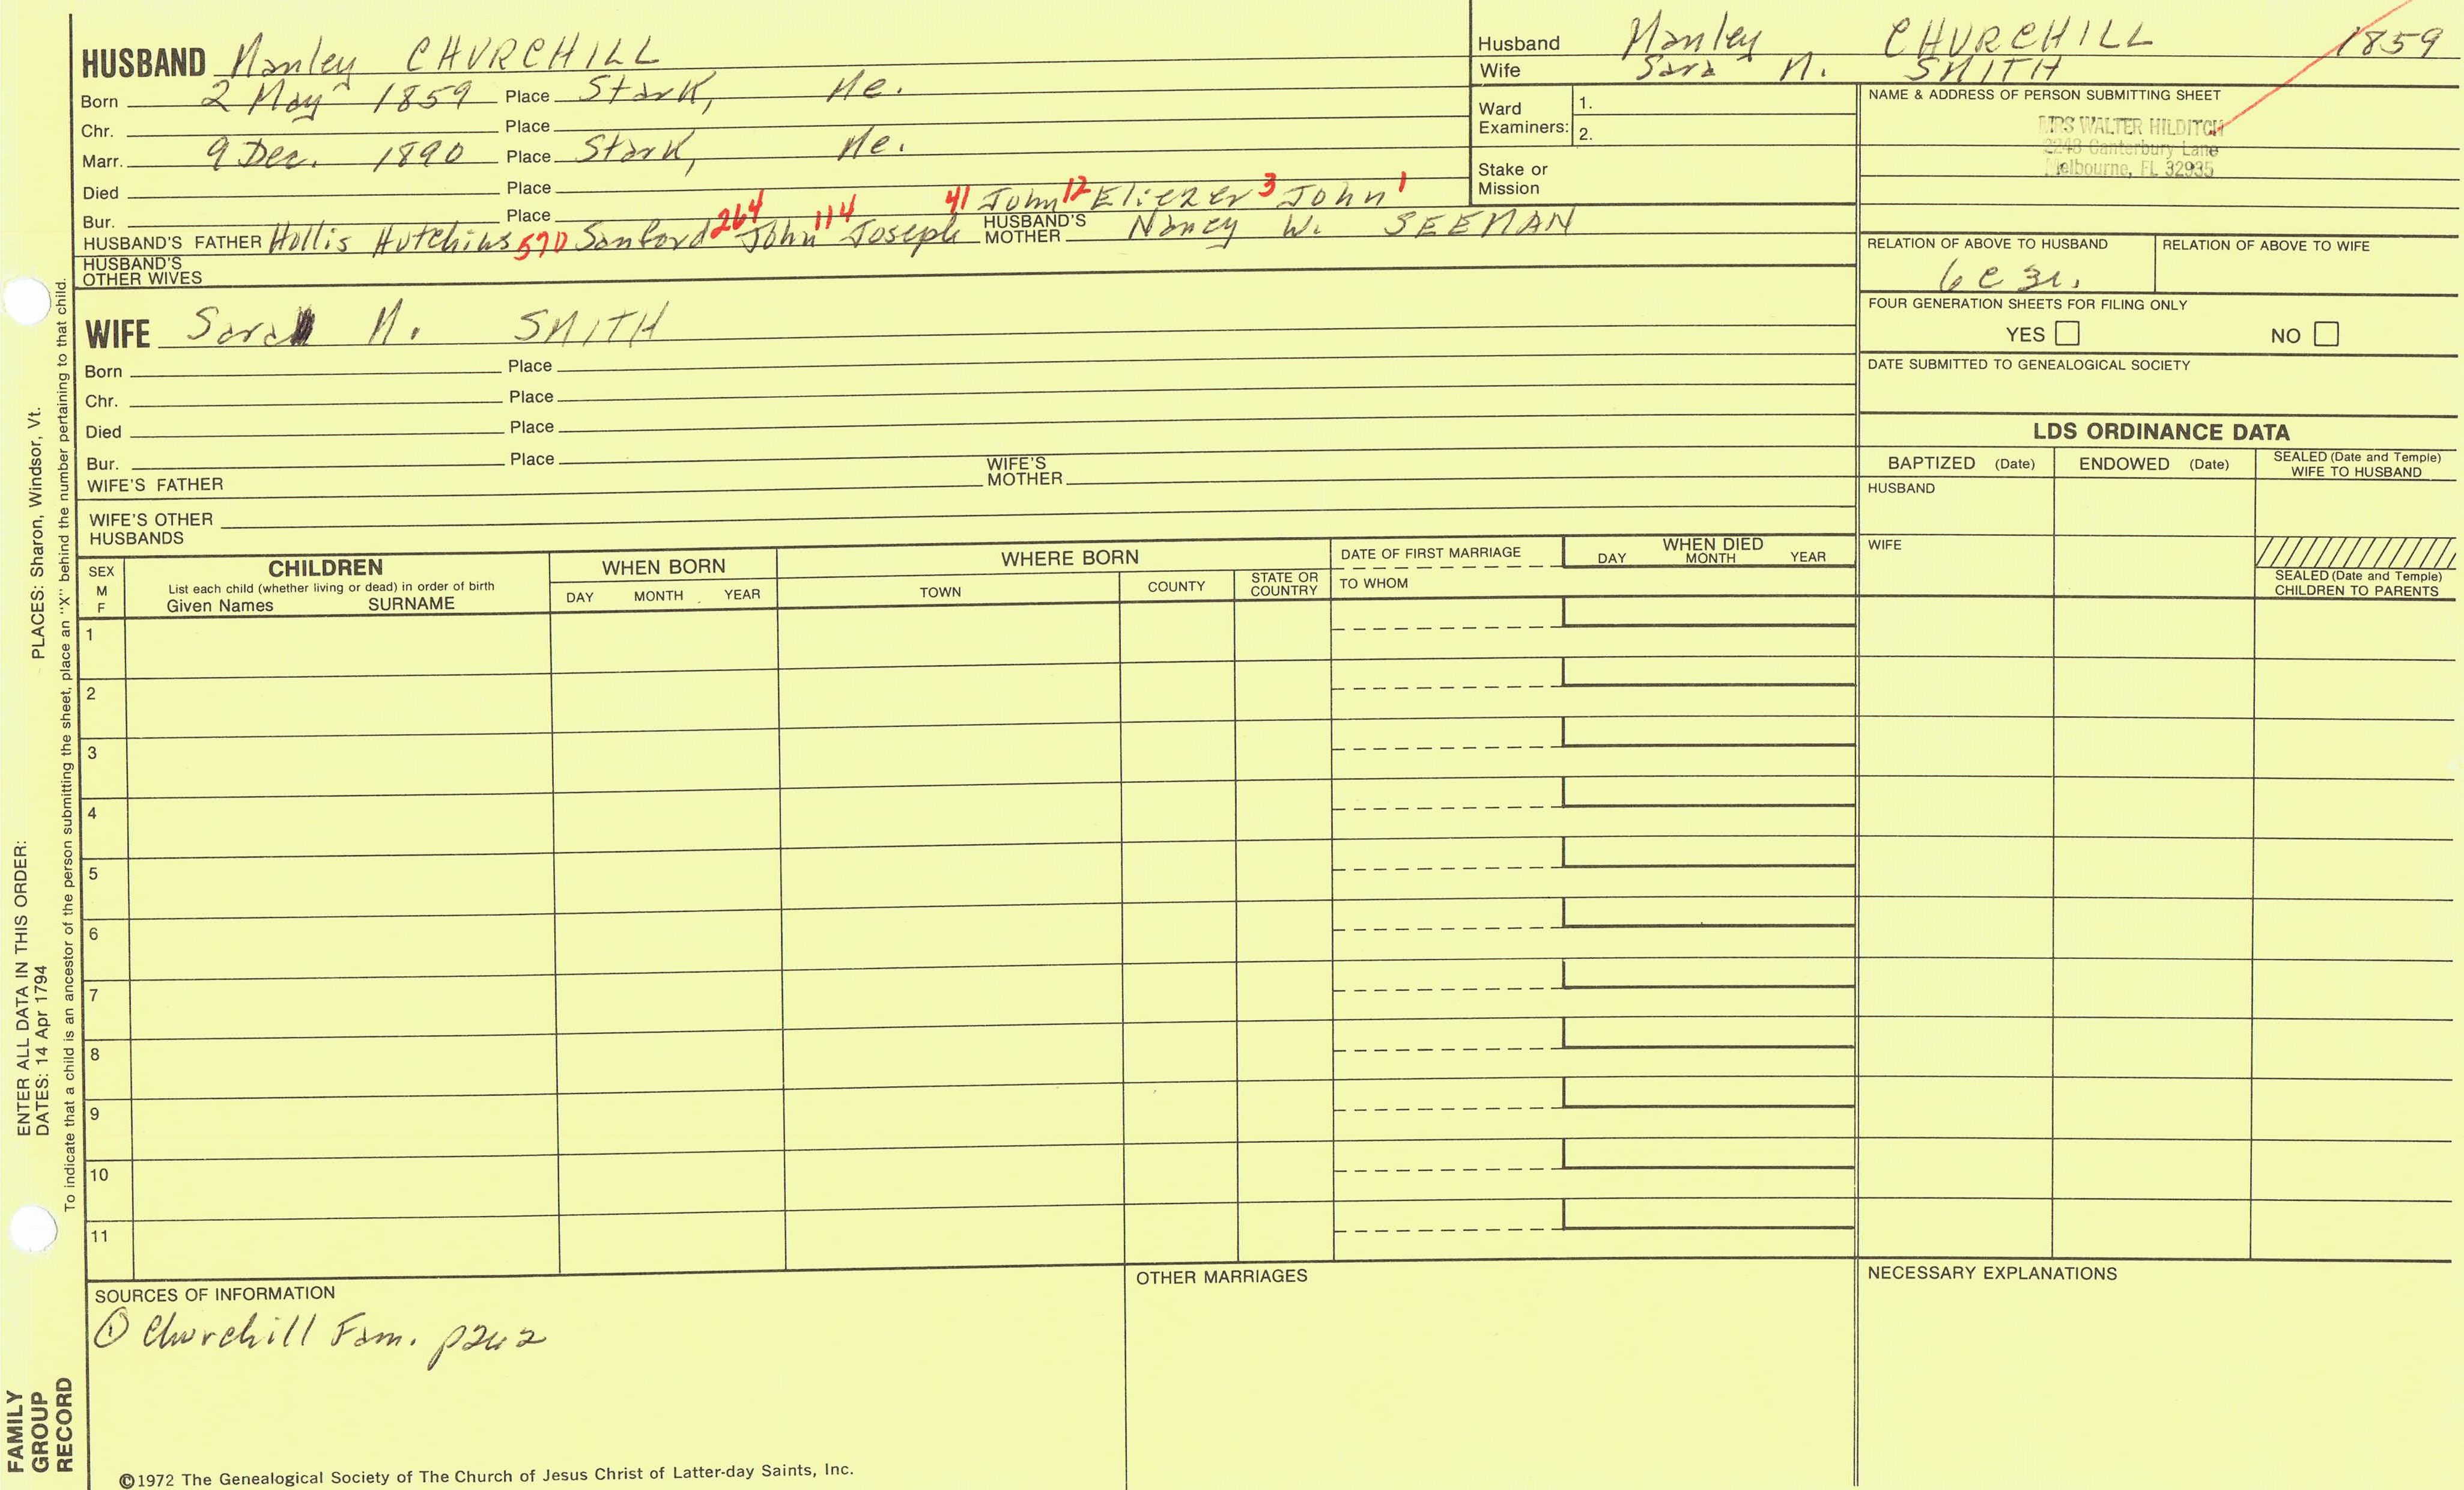 HUSBAND Manley CHURCHILL
Born 2 May 1859 Place Stark, Me.
Chr. Place
Marr. 9 Dec. 1890 Place Stark, Me.
Died Place
Bur. Place 41 John 12 Eliezer 3 John 1
HUSBAND'S FATHER Hollis Hutchins 570 Sanford 264 John 114 Joseph HUSBAND'S MOTHER Nancy W. SEEMAN
HUSBAND'S OTHER WIVES
Husband Manley CHURCHILL 1859
Wife Sara M. SMITH
Ward Examiners: 1.
2.
Stake or Mission
NAME & ADDRESS OF PERSON SUBMITTING SHEET
MRS WALTER HILDITCH
2248 Canterbury Lane
Melbourne, FL 32935
RELATION OF ABOVE TO HUSBAND RELATION OF ABOVE TO WIFE
6c3r.
FOUR GENERATION SHEETS FOR FILING ONLY
YES NO
DATE SUBMITTED TO GENEALOGICAL SOCIETY
WIFE Sara M. SMITH
Born Place
Chr. Place
Died Place
Bur. Place
WIFE'S FATHER WIFE'S MOTHER
WIFE'S OTHER HUSBANDS
LDS ORDINANCE DATA
BAPTIZED (Date) ENDOWED (Date) SEALED (Date and Temple) WIFE TO HUSBAND
HUSBAND
WIFE
SEALED (Date and Temple) CHILDREN TO PARENTS
SEX M F
CHILDREN
List each child (whether living or dead) in order of birth
Given Names SURNAME
WHEN BORN
DAY MONTH YEAR
WHERE BORN
TOWN COUNTY STATE OR COUNTRY
DATE OF FIRST MARRIAGE
TO WHOM
WHEN DIED
DAY MONTH YEAR
1
2
3
4
5
6
7
8
9
10
11
SOURCES OF INFORMATION
① Churchill Fam. p242
OTHER MARRIAGES
NECESSARY EXPLANATIONS
©1972 The Genealogical Society of The Church of Jesus Christ of Latter-day Saints, Inc.
FAMILY GROUP RECORD
ENTER ALL DATA IN THIS ORDER:
DATES: 14 Apr 1794 PLACES: Sharon, Windsor, Vt.
To indicate that a child is an ancestor of the person submitting the sheet, place an "X" behind the number pertaining to that child.